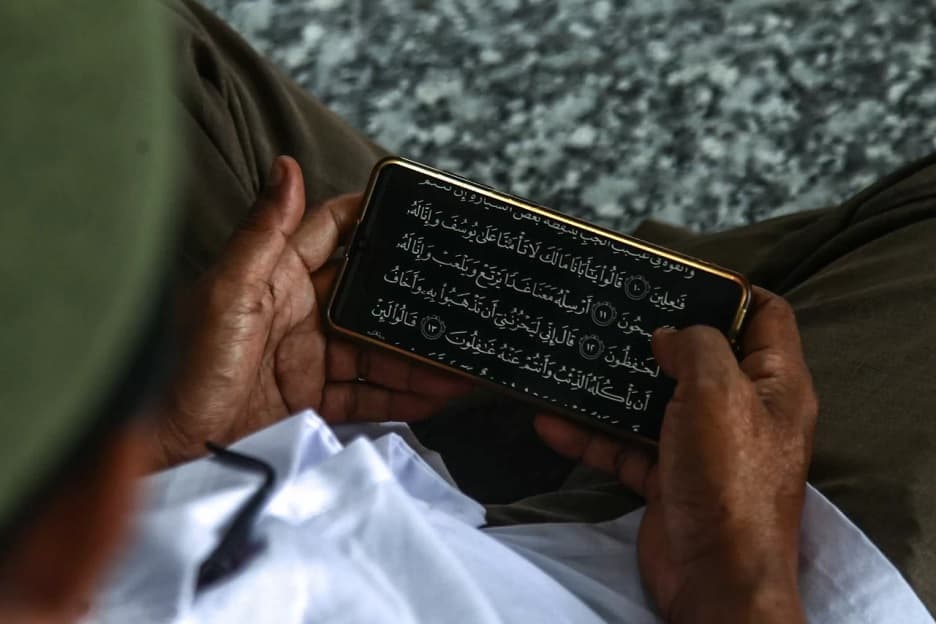 وَأَلْقُوهُ فِي غَيَٰبَتِ ٱلْجُبِّ يَلْتَقِطْهُ بَعْضُ ٱلسَّيَّارَةِ إِن كُنتُمْ
فَٰعِلِينَ ١٠ قَالُوا۟ يَٰٓأَبَانَا مَا لَكَ لَا تَأْمَ۫نَّا عَلَىٰ يُوسُفَ وَإِنَّا لَهُۥ
١١ أَرْسِلْهُ مَعَنَا غَدًا يَرْتَعْ وَيَلْعَبْ وَإِنَّا لَهُۥ
لَحَٰفِظُونَ ١٢ قَالَ إِنِّي لَيَحْزُنُنِيٓ أَن تَذْهَبُوا۟ بِهِۦ وَأَخَافُ
أَن يَأْكُلَهُ ٱلذِّئْبُ وَأَنتُمْ عَنْهُ غَٰفِلُونَ ١٣ قَالُوا۟ لَئِنْ